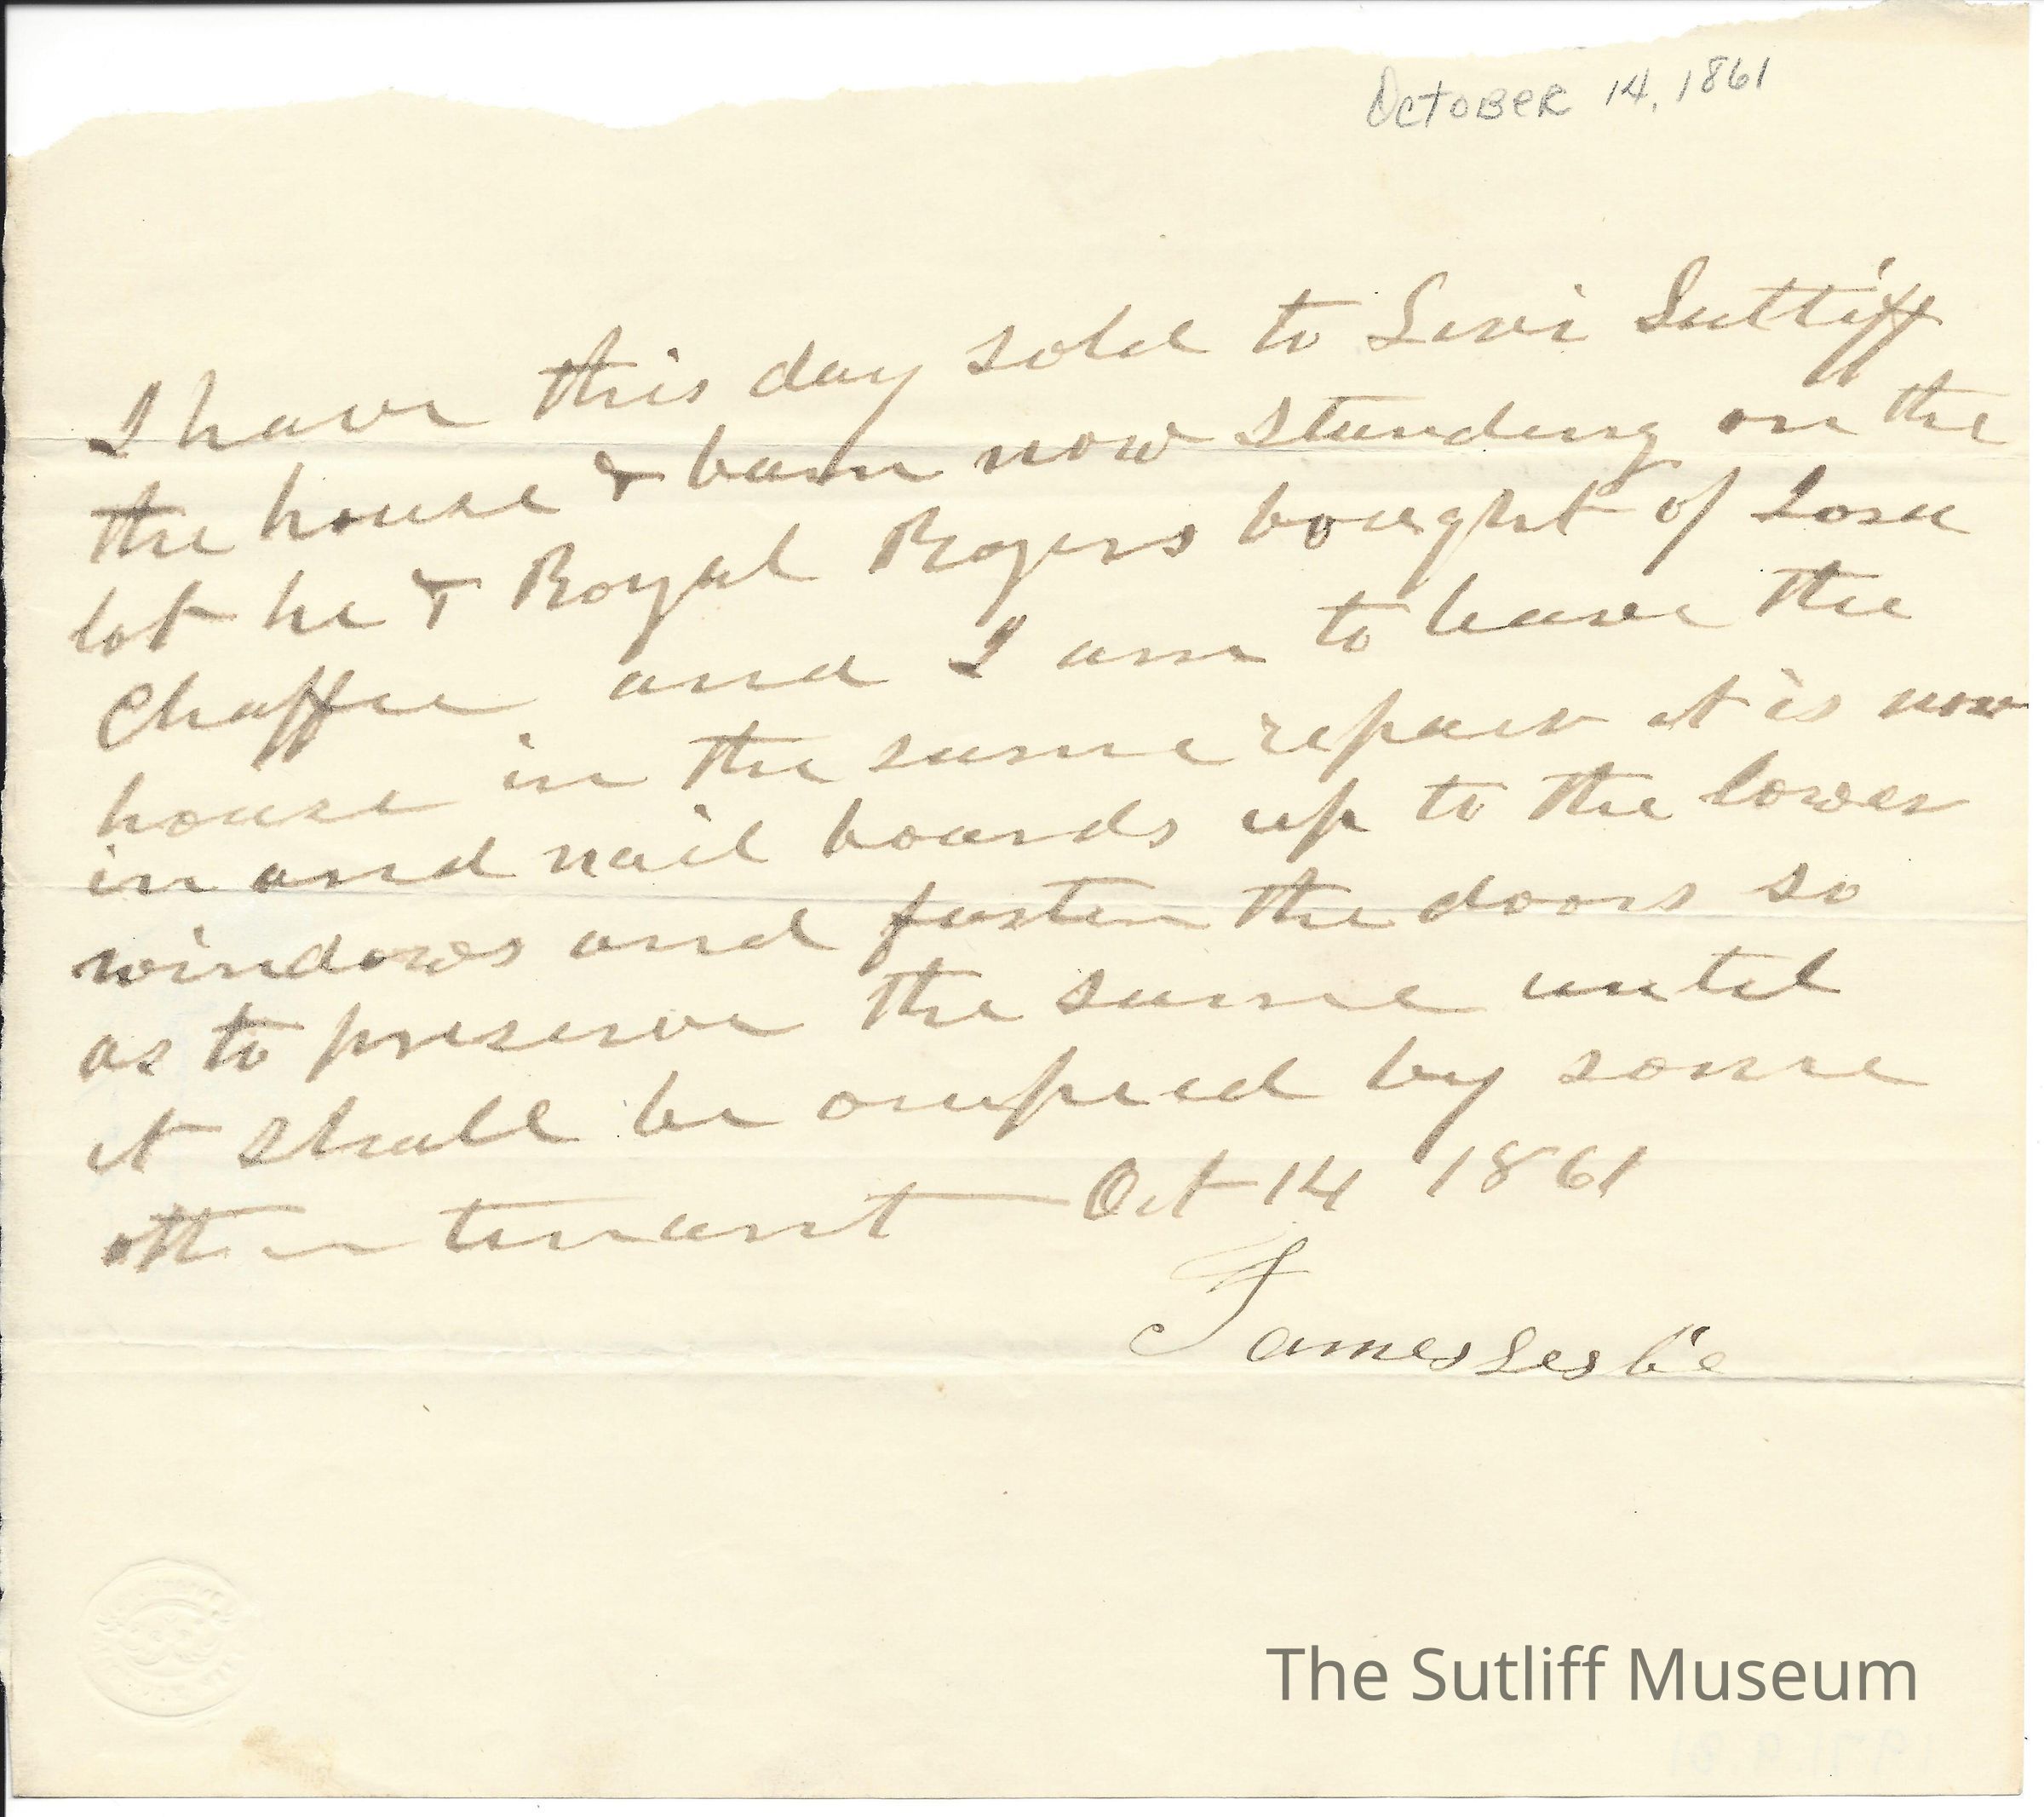 October 14, 1861
I have this day sold to Levi Sutliff
the house & barn now standing on the
lot he & Royal Rogers bought of
Chaffee and I am to leave the
house in the same repair it is now
in and nail boards up to the lower
windows and fasten the doors so
as to preserve the same until
it shall be occupied by some
other tenant — Oct 14 1861
James Leslie
The Sutliff Museum